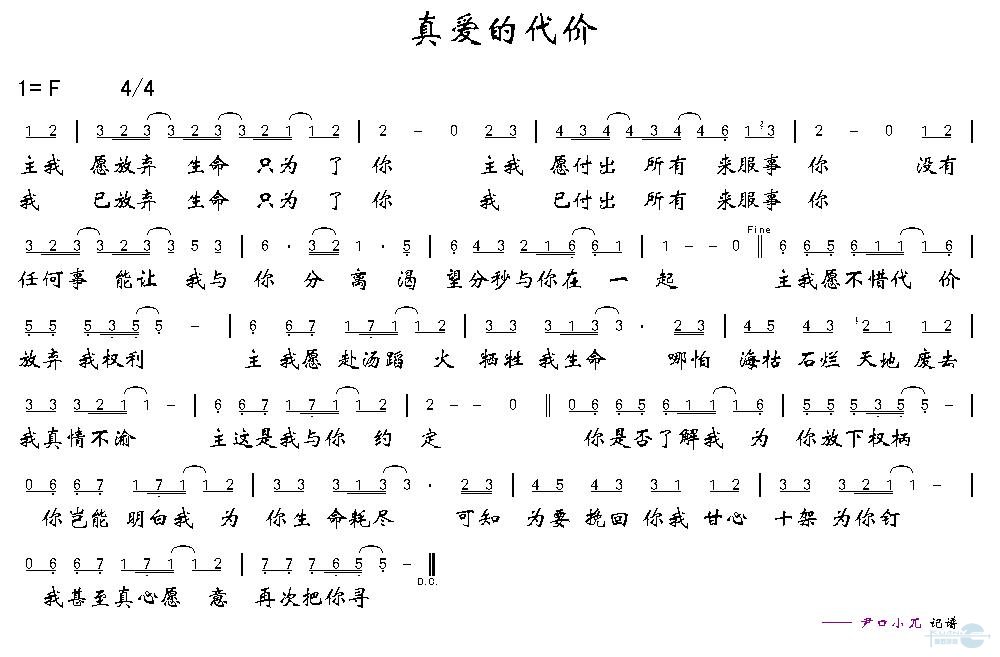 真爱的代价
1= F 4/4
1 2 | 3 2 3 3 2 3 3 2 1 1 2 | 2 - 0 2 3 | 4 3 4 4 3 4 4 6 1 2 3 | 2 - 0 1 2 |
主我 愿放弃 生命 只为 了 你 主我 愿付出 所有 来服事 你 没有
我 已放弃 生命 只为 了 你 我 已付出 所有 来服事 你
Fine
3 2 3 3 2 3 3 5 3 | 6 · 3 2 1 · 5 | 6 4 3 2 1 6 6 1 | 1 - - 0 || 6 6 5 6 1 1 1 6 |
任何事 能让 我与 你 分 离 渴 望分秒与你在 一 起 主我愿不惜代 价
5 5 5 3 5 5 - | 6 6 7 1 7 1 1 2 | 3 3 3 1 3 3 · 2 3 | 4 5 4 3 2 1 1 2 |
放弃 我权利 主 我愿 赴汤蹈 火 牺牲 我生命 哪怕 海枯 石烂 天地 废去
3 3 3 2 1 1 - | 6 6 7 1 7 1 1 2 | 2 - - 0 || 0 6 6 5 6 1 1 1 6 | 5 5 5 3 5 5 - |
我真情不渝 主这是我与你 约 定 你是否了解我 为 你放下权柄
0 6 6 7 1 7 1 1 2 | 3 3 3 1 3 3 · 2 3 | 4 5 4 3 3 1 1 2 | 3 3 3 2 1 1 - |
你岂能 明白我 为 你生 命耗尽 可知 为要 挽回 你我 甘心 十架 为你钉
0 6 6 7 1 7 1 1 2 | 7 7 7 6 5 5 - ||
D.C.
我甚至真心愿 意 再次把你寻
—— 尹口小兀 记谱